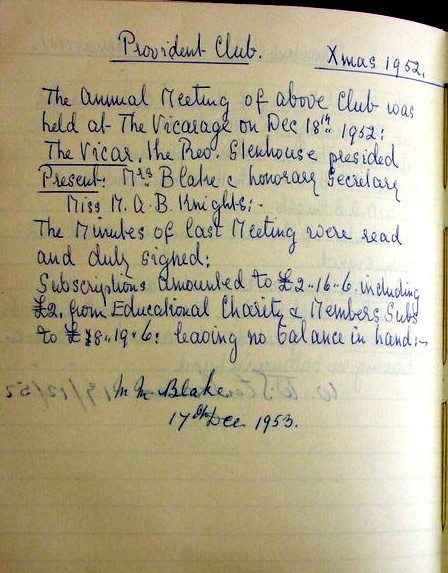 Provident Club. Xmas 1952.
The Annual Meeting of above Club was
held at The Vicarage on Dec 18th 1952:
The Vicar, the Rev. Glenhouse presided
Present: Mrs Blake & honorary Secretary
Miss M. A. B. Knights:-
The Minutes of last Meeting were read
and duly signed:
Subscriptions amounted to £2-16-6. including
£2. from Educational Charity & Members Subs
to £78-19-6: leaving no balance in hand:-
M M Blake.
17th Dec 1953.